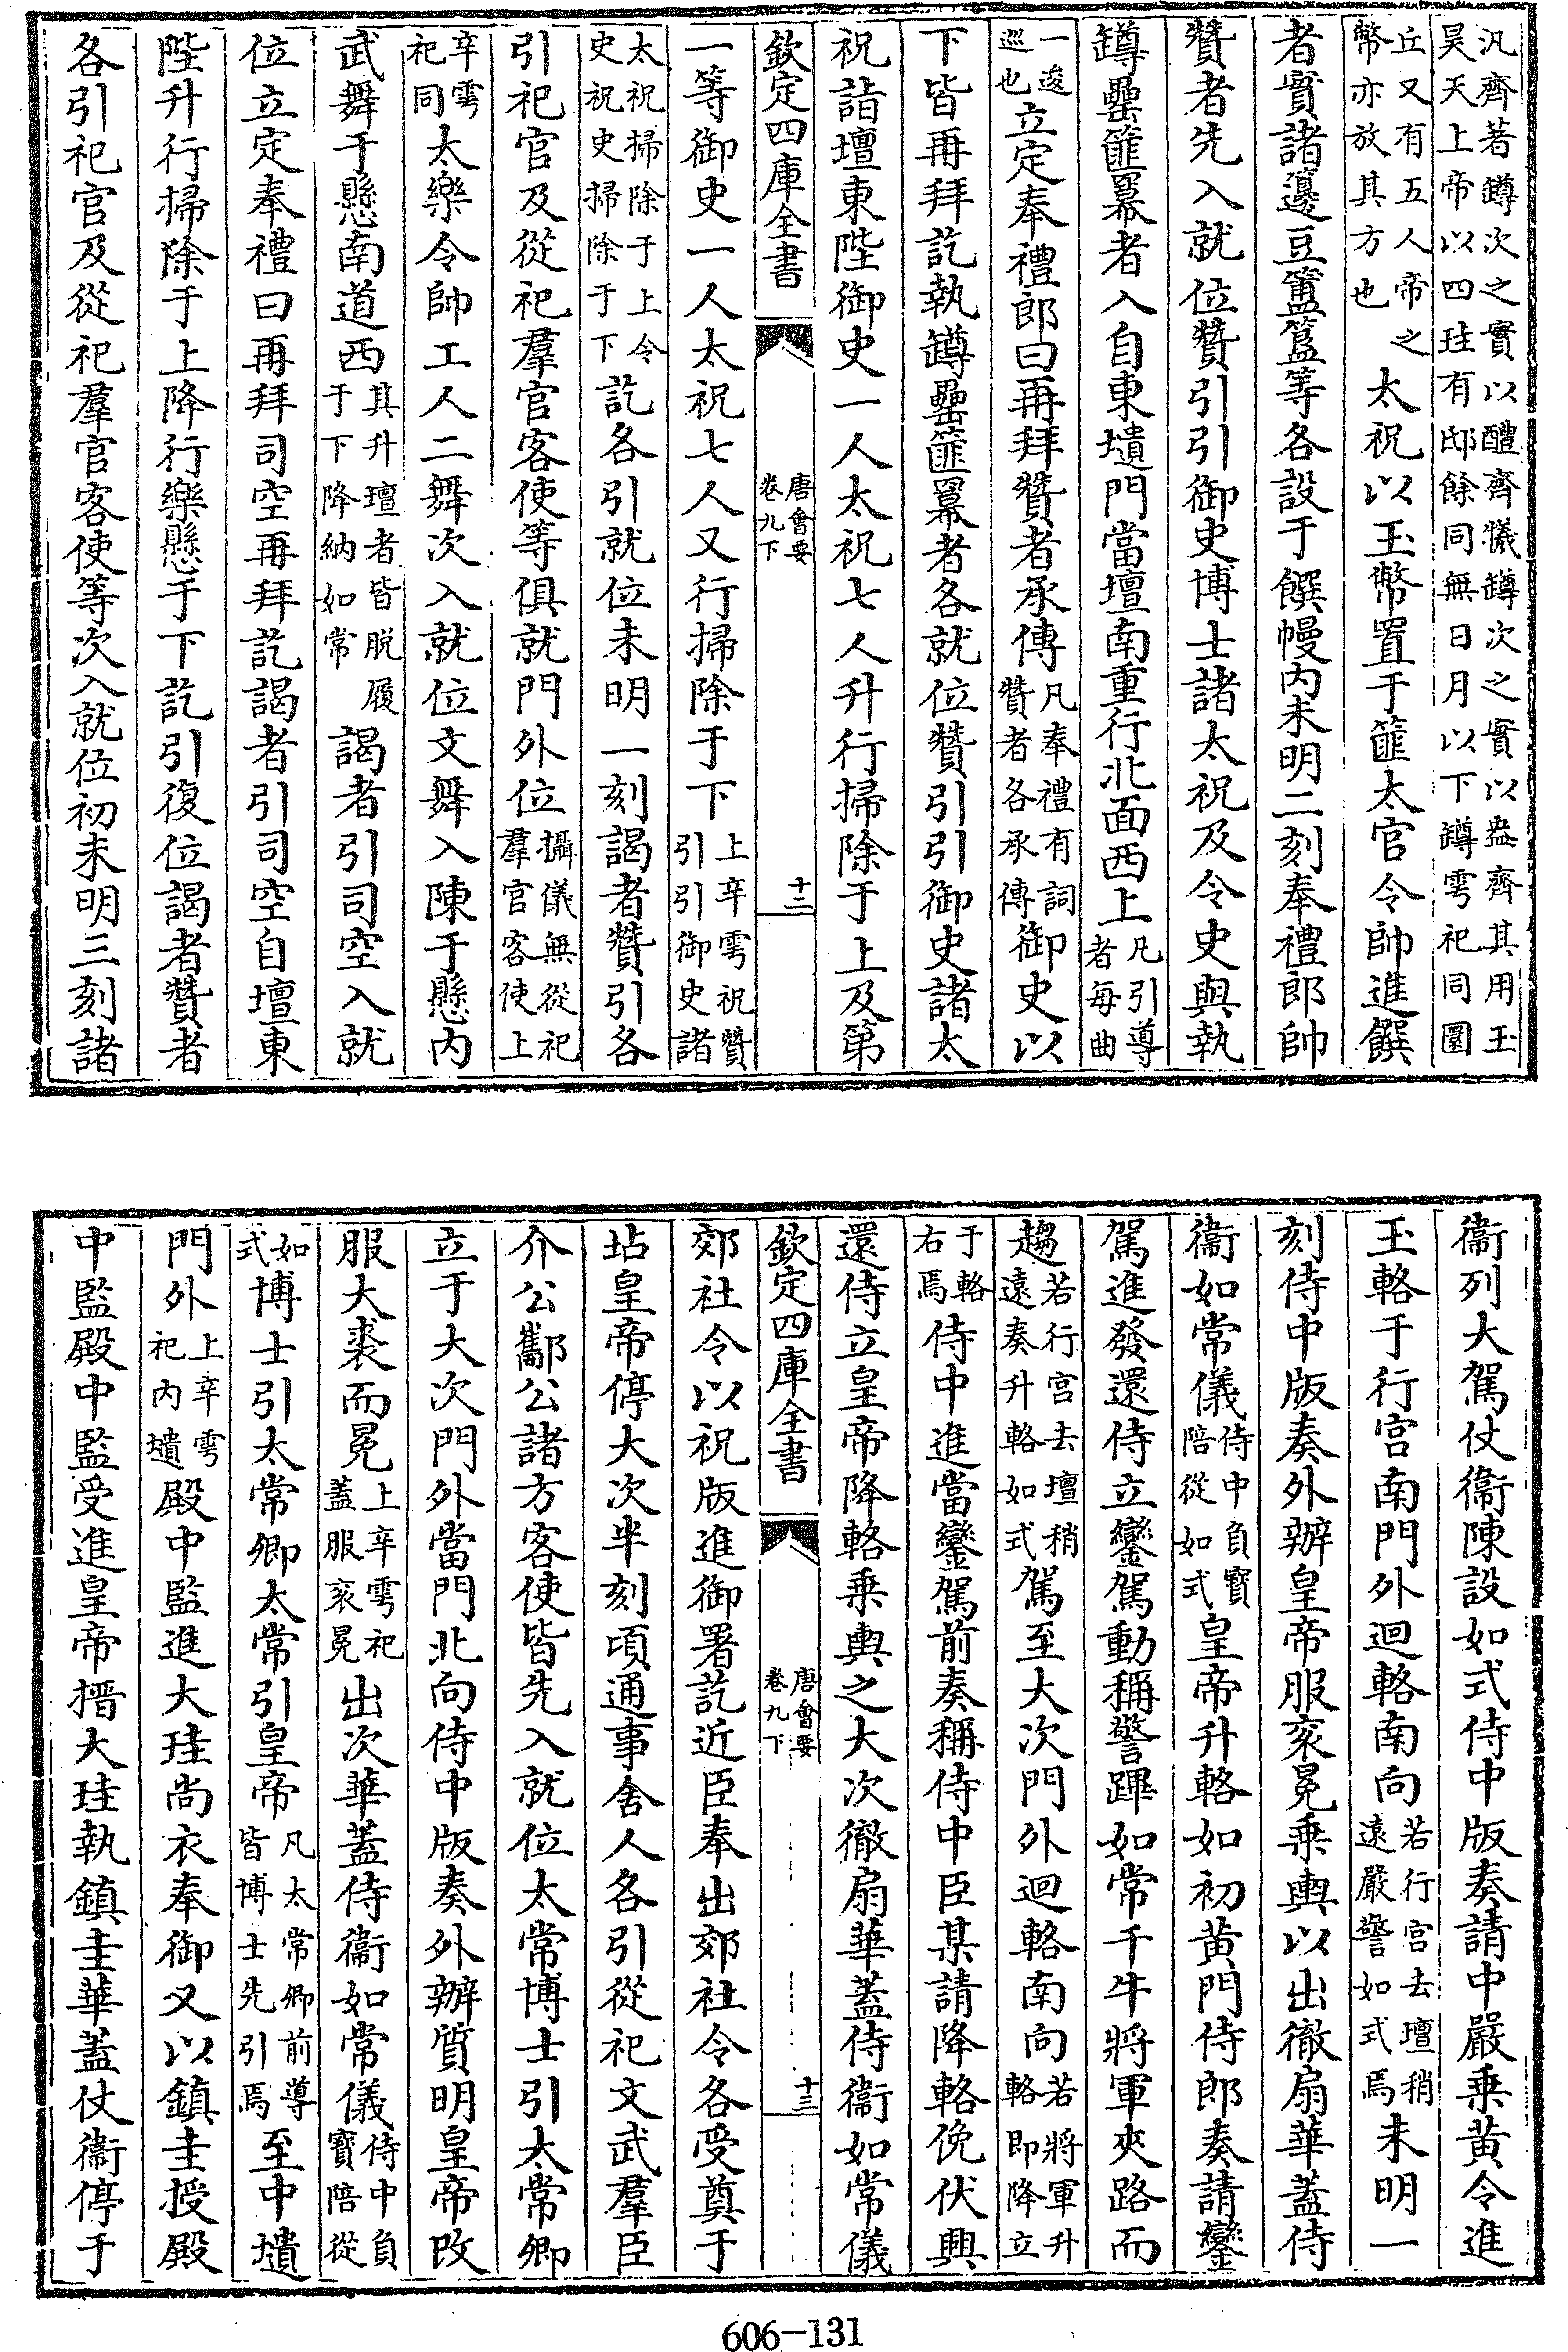 汎齊著罇次之實以醴齊犧罇次之實以盎齊其用玉
昊天上帝以四珪有邸餘同無日月以下罇雩祀同圜
丘又有五人帝之
幣亦放其方也
太祝以玉幣置于篚太官令帥進饌
者實諸籩豆簠簋等各設于饌幔内未明二刻奉禮郎帥
贊者先入就位贊引引御史博士諸太祝及令史與執
罇罍篚羃者入自東壝門當壇南重行北面西上凡引導
者每曲
一逡
巡也立定奉禮郎曰再拜贊者承傳凡奉禮有詞
贊者各承傳御史以
下皆再拜訖執罇罍篚羃者各就位贊引引御史諸太
祝詣壇東陛御史一人太祝七人升行掃除于上及第
欽定四庫全書 唐會要
卷九下 十二
一等御史一人太祝七人又行掃除于下上辛雩祝贊
引引御史諸
太祝掃除于上令
史祝史掃除于下訖各引就位未明一刻謁者贊引各
引祀官及從祀羣官客使等俱就門外位攝儀無從祀
羣官客使上
辛雩
祀同太樂令帥工人二舞次入就位文舞入陳于懸内
武舞于懸南道西其升壇者皆脱履
于下降納如常謁者引司空入就
位立定奉禮曰再拜司空再拜訖謁者引司空自壇東
陛升行掃除于上降行樂懸于下訖引復位謁者贊者
各引祀官及從祀羣官客使等次入就位初未明三刻諸
衞列大駕仗衞陳設如式侍中版奏請中嚴乗黄令進
玉輅于行宫南門外迴輅南向若行宫去壇稍
遠嚴警如式焉未明一
刻侍中版奏外辦皇帝服衮冕乗輿以出徹扇華蓋侍
衞如常儀侍中負寶
陪從如式皇帝升輅如初黄門侍郎奏請鑾
駕進發還侍立鑾駕動稱警蹕如常千牛將軍夾路而
趨若行宫去壇稍
遠奏升輅如式駕至大次門外迴輅南向若將軍升
輅即降立
于輅
右焉侍中進當鑾駕前奏稱侍中臣某請降輅俛伏興
還侍立皇帝降輅乗輿之大次徹扇華蓋侍衞如常儀
欽定四庫全書 唐會要
卷九下 十三
郊社令以祝版進御署訖近臣奉出郊社令各受奠于
坫皇帝停大次半刻頃通事舍人各引從祀文武羣臣
介公酅公諸方客使皆先入就位太常博士引太常卿
立于大次門外當門北向侍中版奏外辦質明皇帝改
服大裘而冕上辛雩祀
蓋服衮冕出次華蓋侍衞如常儀侍中負
寶陪從
如
式博士引太常卿太常引皇帝凡太常卿前導
皆博士先引焉至中壝
門外上辛雩
祀内壝殿中監進大珪尚衣奉御又以鎮圭授殿
中監殿中監受進皇帝搢大珪執鎮圭華蓋仗衞停于
606-131